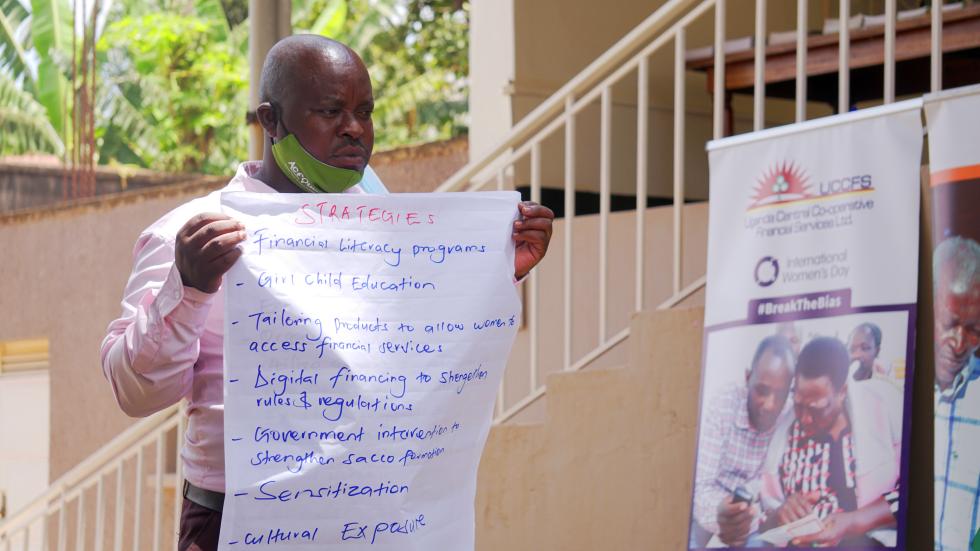 STRATEGIES
- Financial Literacy programs
- Girl Child Education
- Tailoring products to allow women to
access financial services
- Digital financing to
rules & regulations
- Government intervention to
strengthen sacco formation
- Sensitization
- Cultural Exposure
UCCFS
Uganda Central Co-operative
Financial Services Ltd.
International
Women's Day
#BreakTheBias